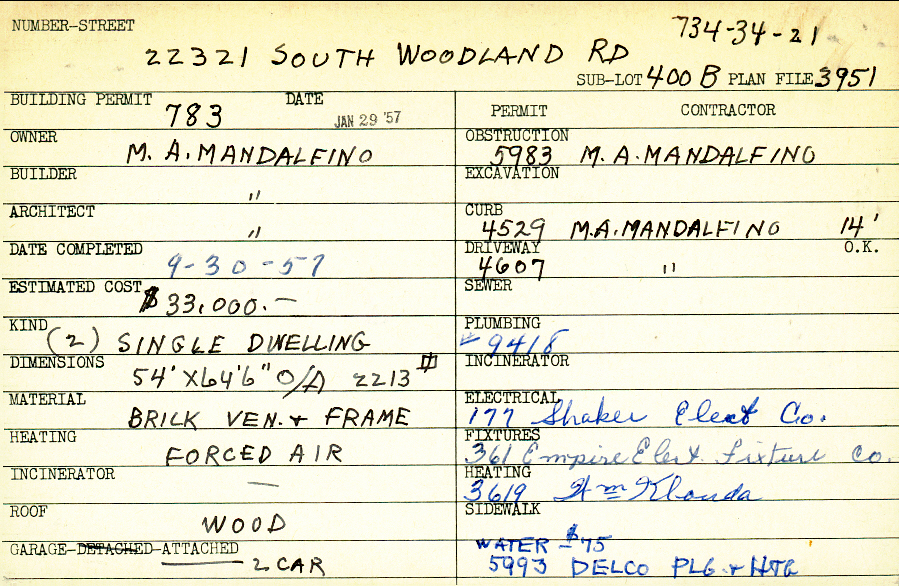 NUMBER-STREET
734-34-21
22321 SOUTH WOODLAND RD
SUB-LOT 400 B PLAN FILE 3951
BUILDING PERMIT 783 DATE JAN 29 '57
OWNER
M. A. MANDALFINO
BUILDER
"
ARCHITECT
"
DATE COMPLETED
9-30-57
ESTIMATED COST
$33,000.—
KIND
(2) SINGLE DWELLING
DIMENSIONS
54' X 64'6" O/A 2213 #
MATERIAL
BRICK VEN. + FRAME
HEATING
FORCED AIR
INCINERATOR
—
ROOF
WOOD
GARAGE-DETACHED-ATTACHED
2 CAR
PERMIT CONTRACTOR
OBSTRUCTION
5983 M. A. MANDALFINO
EXCAVATION
CURB
4529 M.A. MANDALFINO 14'
DRIVEWAY O.K.
4607 "
SEWER
PLUMBING
# 9418
INCINERATOR
ELECTRICAL
177 Shaker Elect Co.
FIXTURES
361 Empire Elect. Fixture Co.
HEATING
3619 Wm Klouda
SIDEWALK
WATER - $75
5993 DELCO PLG + HTG